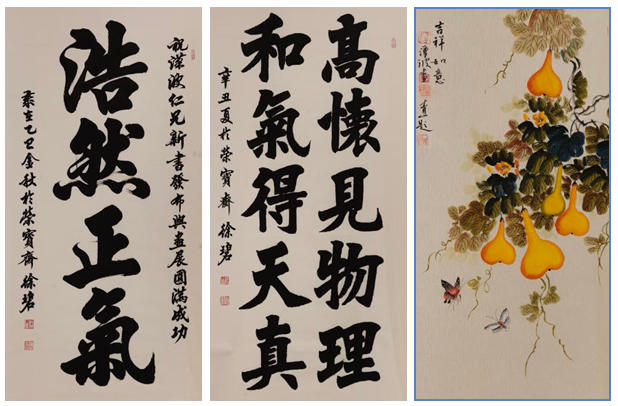 祝 波仁兄新書發布與畫展圓滿成功
浩然正氣
歲在乙巳金秋於榮寶齋徐碧
高懷見物理
和氣得天真
辛丑夏於榮寶齋 徐碧
吉祥如意
波畫